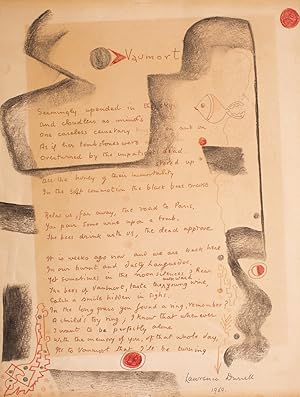 Vaumort
Seemingly upended in the sky
and cloudless as minds
One careless cemetery
As if her tombstones were
Overturned by the impatient dead
stored up
all the honey of their immortality
In the soft commotion the black bees make
Below us, far away, the road to Paris,
You pour some wine upon a tomb.
The bees drink with us, the dead approve.
It is weeks ago now and we are back here
In our burnt and dusty Languedoc,
Yet sometimes in the noon silences I hear
The bees of Vaumort, taste the young wine,
Catch a smile hidden in sighs.
In the long grass you found a ring, remember?
A child's toy ring; I know that whenever
I want to be perfectly alone
With the memory of you, of that whole day,
It's to Vaumort that I'll be turning
Lawrence Durrell
1969.